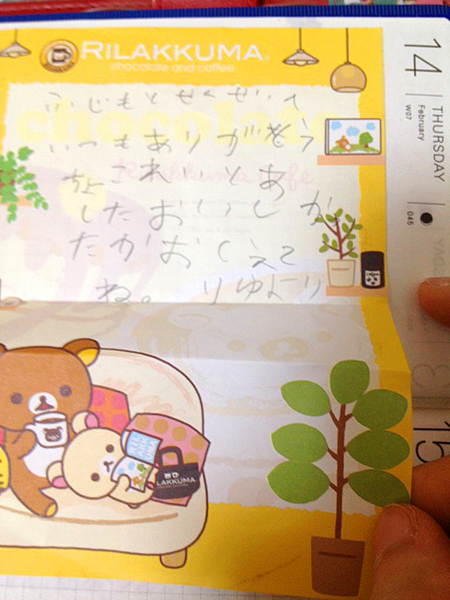 RILAKKUMA
chocolate and coffee
ふじもとせんせいへ
いつもありがとう
ちょこれいとあ
したおいしか
たかおしえて
ね。りゆより
14
THURSDAY
February
W07
045
15
LAKKUMA